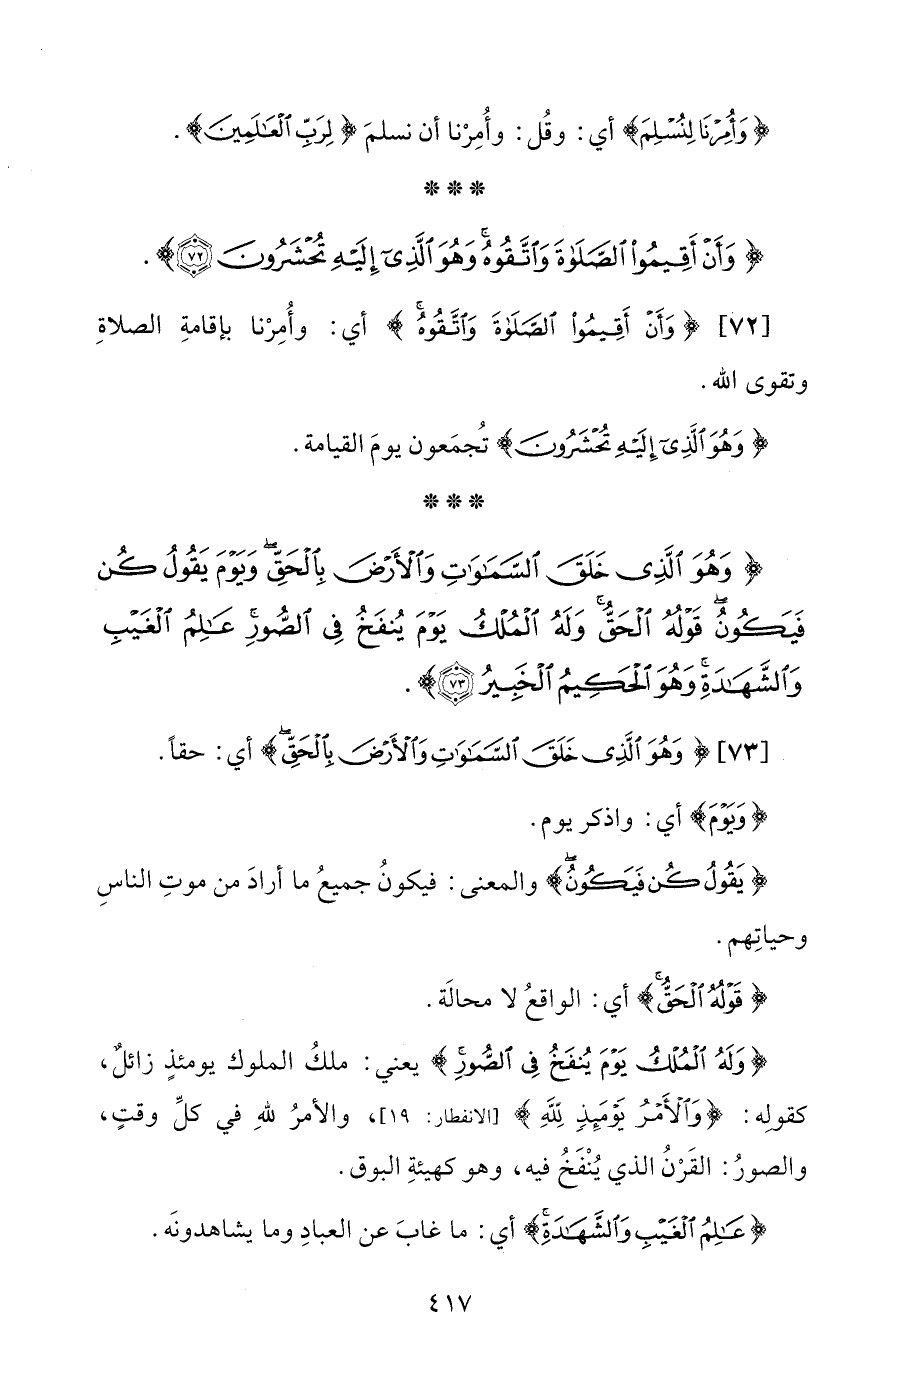 ﴿ وَأُمِرْنَا لِنُسْلِمَ﴾ أي: وقُل: وأُمِرْنا أن نسلمَ ﴿ لِرَبِّ ٱلْعَٰلَمِينَ﴾ .
***
﴿ وَأَنْ أَقِيمُوا۟ ٱلصَّلَوٰةَ وَٱتَّقُوهُ ۚ وَهُوَ ٱلَّذِىٓ إِلَيْهِ تُحْشَرُونَ ٧٢﴾ .
[٧٢] ﴿ وَأَنْ أَقِيمُوا۟ ٱلصَّلَوٰةَ وَٱتَّقُوهُ ۚ ﴾ أي: وأُمِرْنا بإقامةِ الصلاةِ
وتقوى الله.
﴿ وَهُوَ ٱلَّذِىٓ إِلَيْهِ تُحْشَرُونَ﴾ تُجمَعون يومَ القيامة.
***
﴿ وَهُوَ ٱلَّذِى خَلَقَ ٱلسَّمَٰوَٰتِ وَٱلْأَرْضَ بِٱلْحَقِّ ۖ وَيَوْمَ يَقُولُ كُن
فَيَكُونُ ۖ قَوْلُهُ ٱلْحَقُّ ۚ وَلَهُ ٱلْمُلْكُ يَوْمَ يُنفَخُ فِى ٱلصُّورِ ۚ عَٰلِمُ ٱلْغَيْبِ
وَٱلشَّهَٰدَةِ ۚ وَهُوَ ٱلْحَكِيمُ ٱلْخَبِيرُ ٧٣﴾ .
[٧٣] ﴿ وَهُوَ ٱلَّذِى خَلَقَ ٱلسَّمَٰوَٰتِ وَٱلْأَرْضَ بِٱلْحَقِّ ۖ﴾ أي: حقاً.
﴿ وَيَوْمَ﴾ أي: واذكر يوم.
﴿ يَقُولُ كُن فَيَكُونُ ۖ﴾ والمعنى: فيكونُ جميعُ ما أرادَ من موتِ الناسِ
وحياتِهم.
﴿ قَوْلُهُ ٱلْحَقُّ ۚ﴾ أي: الواقعُ لا محالَة.
﴿وَلَهُ ٱلْمُلْكُ يَوْمَ يُنفَخُ فِى ٱلصُّورِ ۚ ﴾ يعني: ملكُ الملوك يومئذٍ زائلٌ،
كقولِه: ﴿وَٱلْأَمْرُ يَوْمَئِذٍ لِّلَّهِ ﴾ [الانفطار: ١٩]، والأمرُ للهِ في كلِّ وقتٍ،
والصورُ: القَرْنُ الذي يُنْفَخُ فيه، وهو كهيئةِ البوق.
﴿عَٰلِمُ ٱلْغَيْبِ وَٱلشَّهَٰدَةِ ۚ﴾ أي: ما غابَ عن العبادِ وما يشاهدونَه.
٤١٧